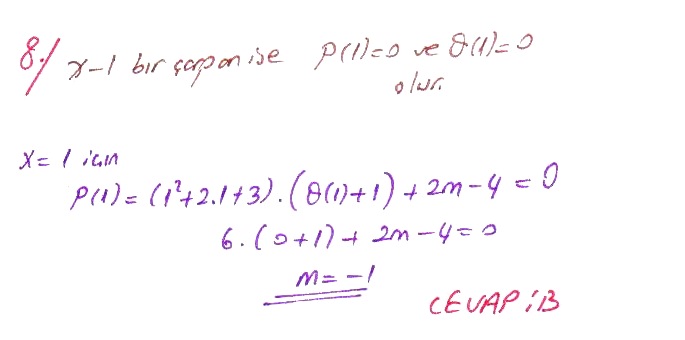 8-/ x-1 bir çarpan ise P(1)=0 ve Q(1)=0
olur.
x=1 için
P(1)=(1²+2.1+3).(Q(1)+1)+2m-4=0
6.(0+1)+2m-4=0
m=-1
CEVAP:B